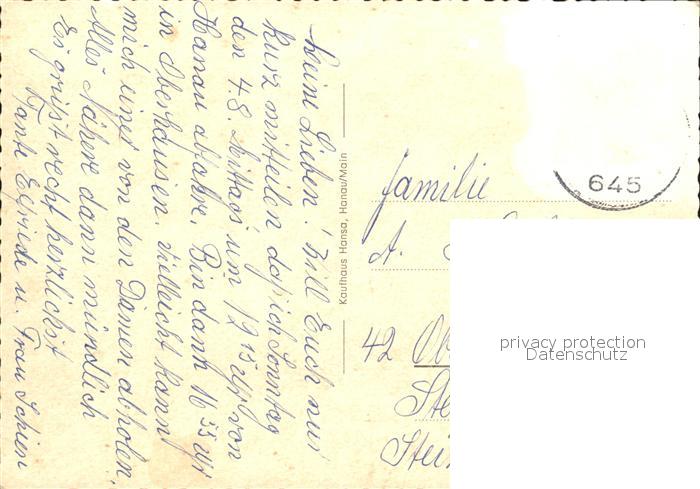 Meine Lieben! Will Euch nur
kurz mitteilen daß ich Sonntag
den 4.8. Mittags um 12 15 Uhr von
Hanau abfahre. Bin dann 16 35 Uhr
in Oberhausen. Vielleicht kann
mich einer von den Damen abholen.
Alles Nähere dann mündlich
Es grüßt recht herzlichst
Tante Elfriede u. Frau
Kaufhaus Hansa, Hanau/Main
645
Familie
A.
42
privacy protection
Datenschutz